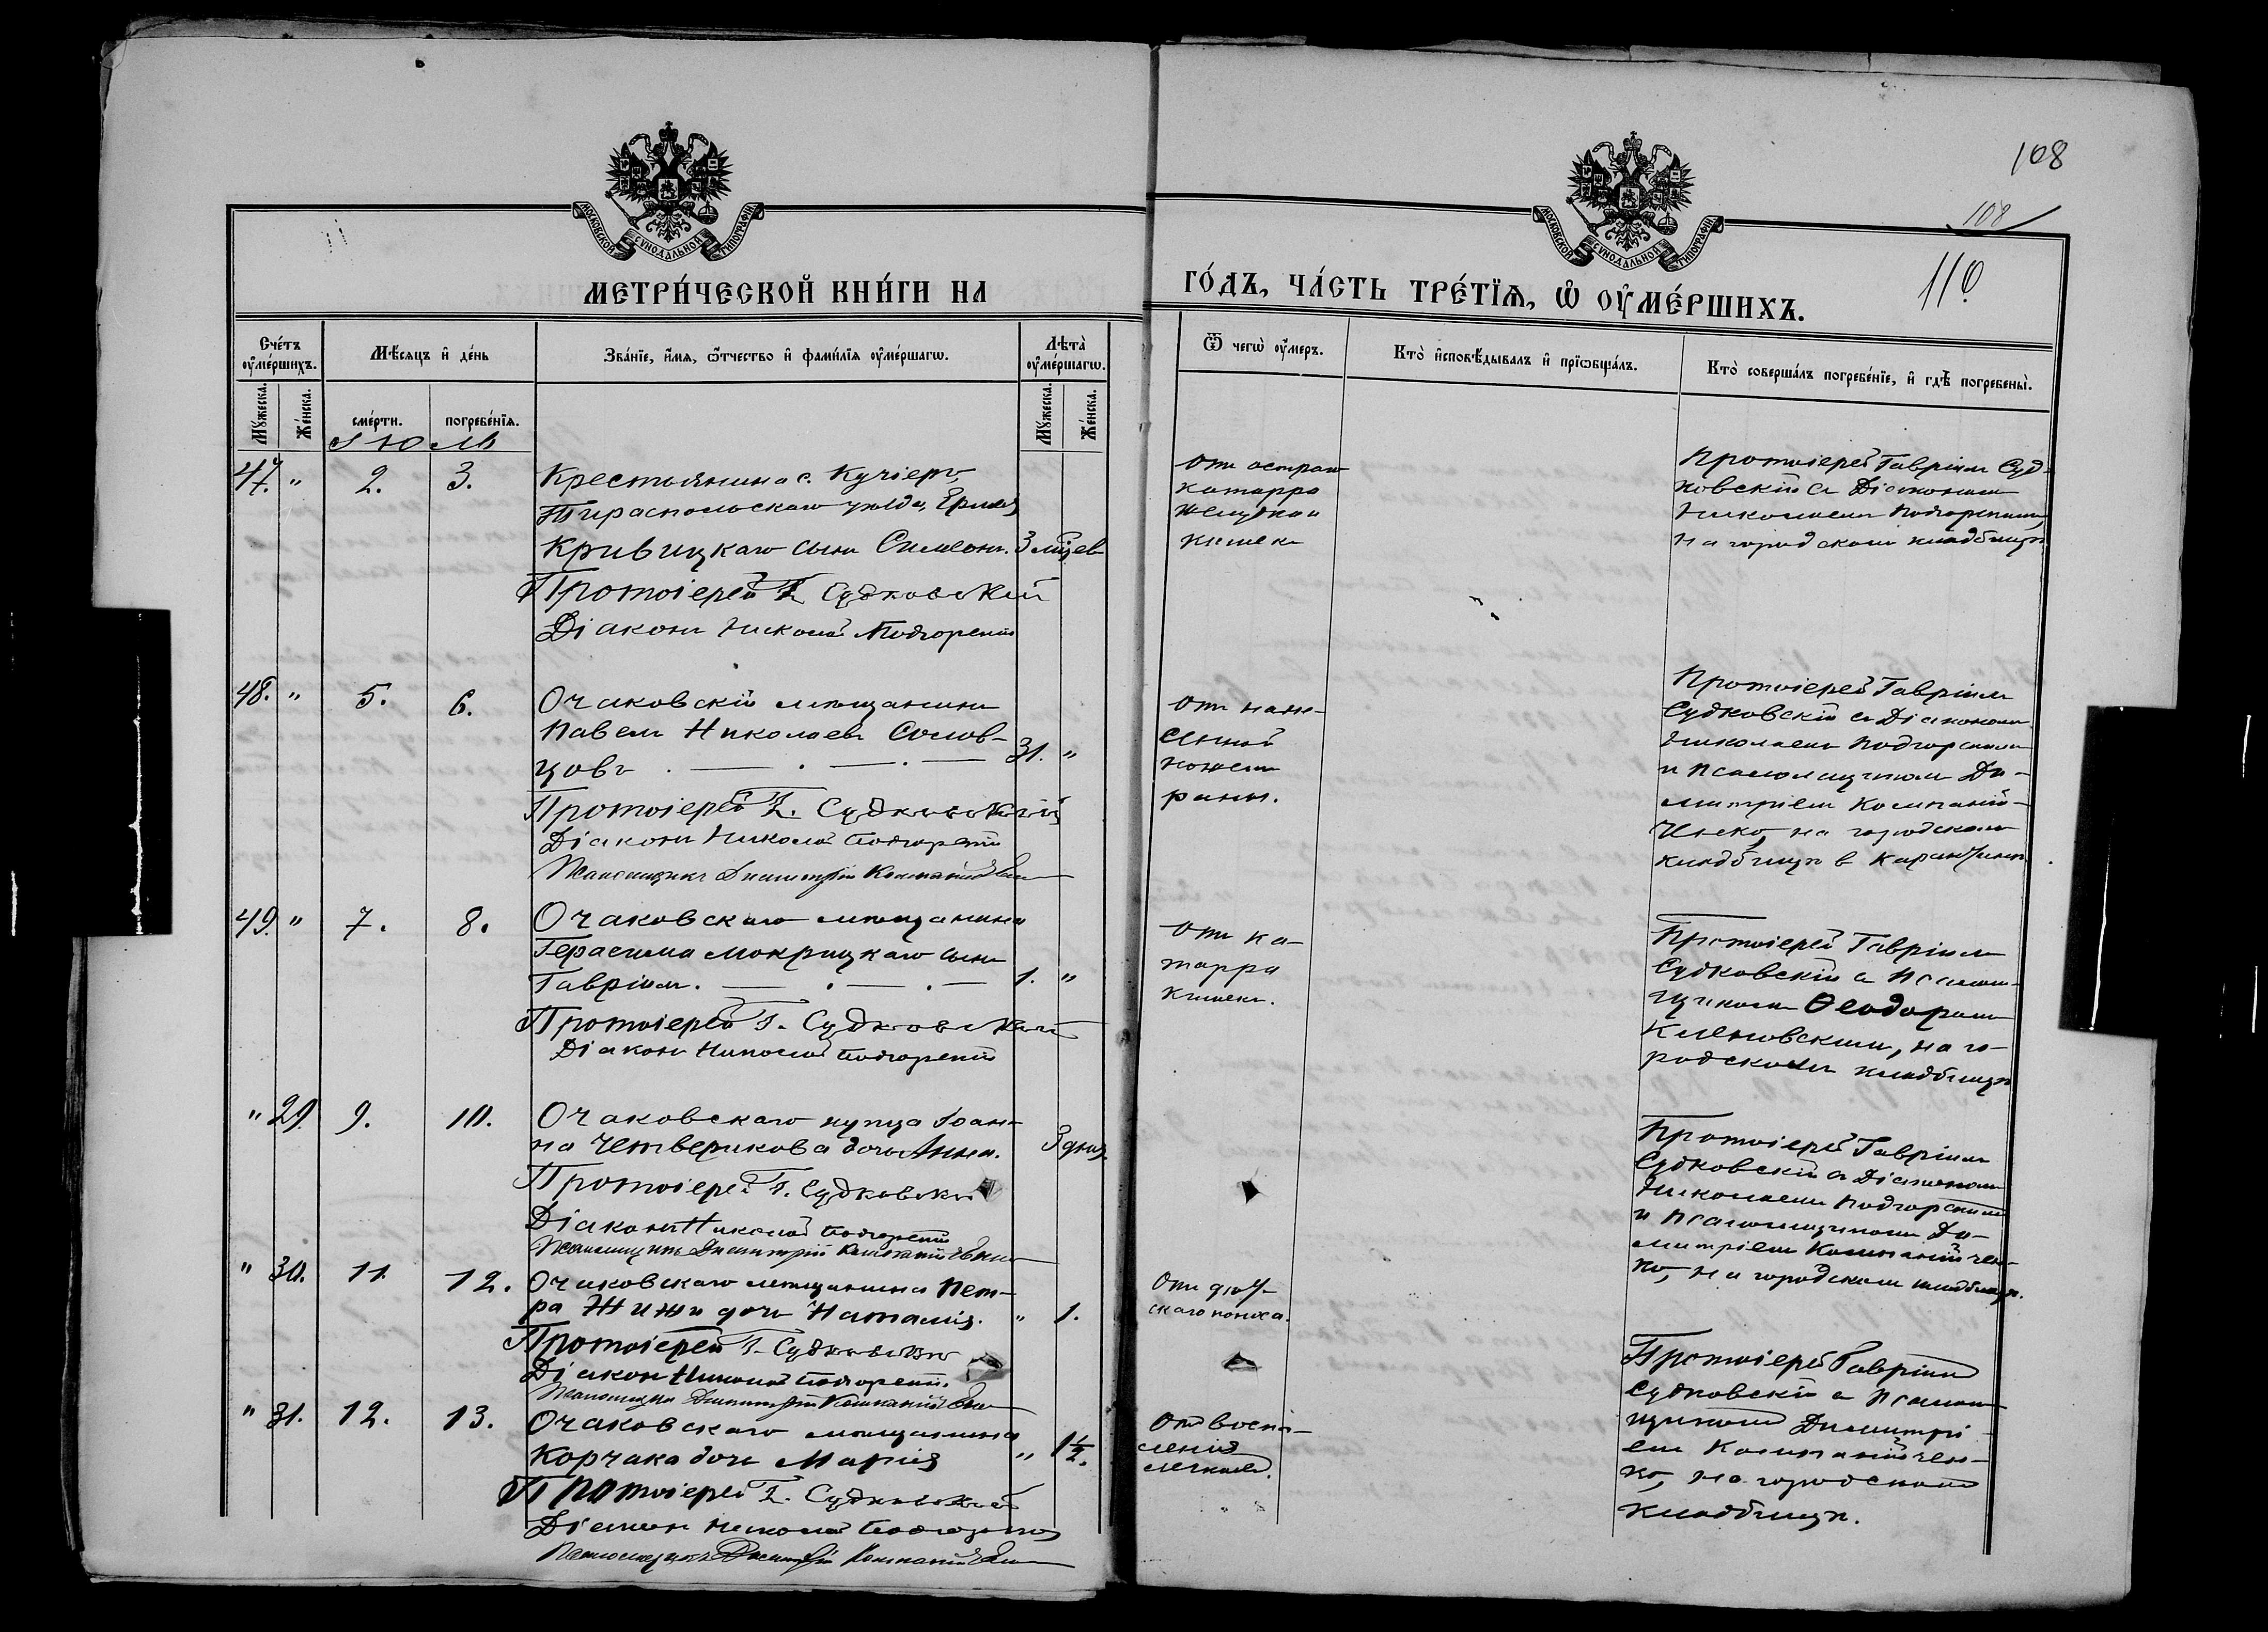 108
108
110
МОСКОВСКОЙ СѴНОДАЛЬНОЙ ТИПОГРАФІИ
МОСКОВСКОЙ СѴНОДАЛЬНОЙ ТИПОГРАФІИ
МЕТРИ́ЧЕСКОЙ КНИ́ГИ НА
ГО́ДЪ, ЧА́СТЬ ТРЕ́ТЇѦ, Ѡ҆ ОУ҆МЕ́РШИХЪ.
Сче́тъ оу҆ме́ршихъ.
Мѣ́сяцъ и҆ де́нь
Зва́нїе, и҆́мѧ, ѻ҆́тчество и҆ фами́лїѧ оу҆ме́ршагѡ.
Лѣ̀та̀ оу҆ме́ршагѡ.
Мꙋ́жеска.
Же́нска.
сме́рти.
погребе́нїѧ.
Мꙋ́жеска.
Же́нска.
Ѿ чегѡ̀ оу҆́меръ.
Кто̀ и҆сповѣ́дывалъ и҆ прїѡбща́лъ.
Кто̀ соверша́лъ погребе́нїе, и҆ гдѣ̀ погребены̀.
Іюль
47. " 2. 3.
Крестьянина с. Кучіеръ,
Тираспольскаго уѣзда, Ермія
Кривицкаго сынъ Симеонъ. 3 мѣсяцев
Протоіерей Г. Судковскій
Діаконъ Николай Подгорецкій
Отъ остраго
катарра
желудка и
кишекъ
Протоіерей Гавріилъ Суд-
ковскій съ Діакономъ
Николаемъ
на городскомъ кладбищѣ
48. " 5. 6.
Очаковскій мѣщанинъ
Павелъ Николаевъ Солов-
цовъ 31. "
Протоіерей Г. Судковскій
Діаконъ Николай
Псаломщикъ Димитрій Компанійченко
Отъ нане-
сенной
ножемъ
раны.
Протоіерей Гавріилъ
Судковскій съ Діакономъ
Николаемъ
и Псаломщикомъ Ди-
митріемъ Компаній-
ченко, на городскомъ
кладбищѣ в Карантинѣ.
49. " 7. 8.
Очаковскаго мѣщанина
Герасима Мокрицкаго сынъ
Гавріилъ. 1. "
Протоіерей Г. Судковскій
Діаконъ Николай
Отъ ка-
тарра
кишекъ.
Протоіерей Гавріилъ
Судковскій съ Псалом-
щикомъ Ѳеодоромъ
на го-
родскомъ кладбищѣ
" 29. 9. 10.
Очаковскаго купца Іоан-
на Четверикова дочь Анна. 3 дня
Протоіерей Г. Судковскій
Діаконъ Николай
Псаломщикъ Димитрій Компанійченко
Протоіерей Гавріилъ
Судковскій съ Діакономъ
Николаемъ
и Псаломщикомъ Ди-
митріемъ Компанійчен-
ко, на городскомъ кладбищѣ.
" 30. 11. 12.
Очаковскаго мѣщанина Пет-
ра Жижи дочь Наталія. " 1.
Протоіерей Г. Судковскій
Діаконъ Николай
Псаломщикъ Димитрій Компанійченко
Отъ дѣт-
скаго поноса.
Протоіерей Гавріилъ
Судковскій съ Псалом-
щикомъ Димитрі-
емъ Компанійчен-
ко, на городскомъ
кладбищѣ.
" 31. 12. 13.
Очаковскаго мѣщанина
Корчака дочь Марія " 1½.
Протоіерей Г. Судковскій
Діаконъ Николай
Псаломщикъ Димитрій Компанійченко
Отъ воспа-
ленія
легкихъ.